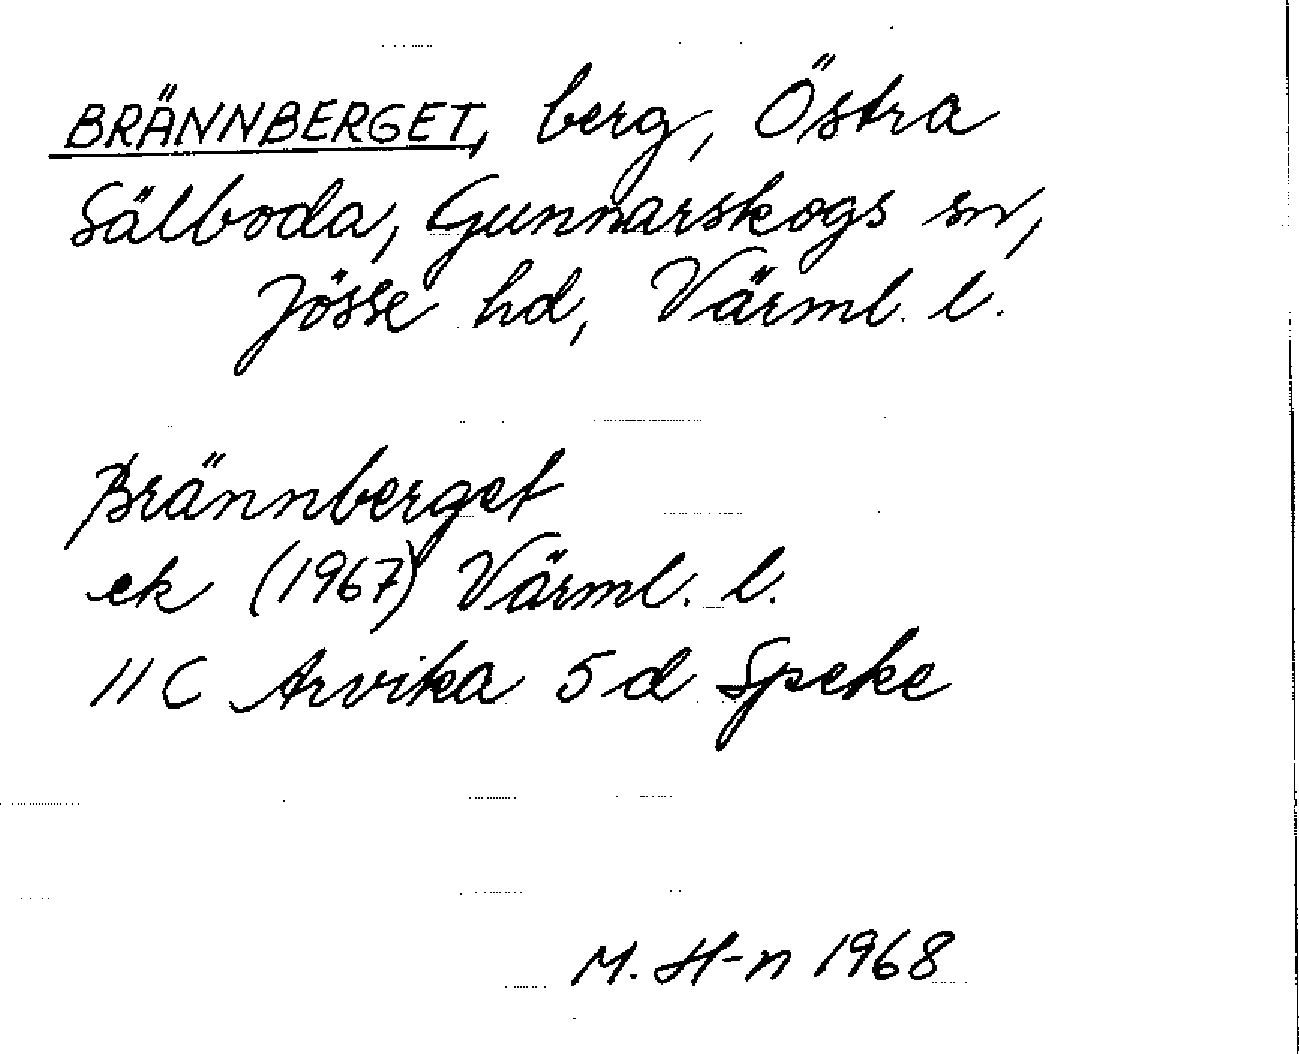 BRÄNNBERGET, berg, Östra
Sälboda, Gunnarskogs sn,
Jösse hd, Värml. l.
Brännberget
ek (1967) Värml. l.
11 C Arvika 5 d Speke
M. H-n 1968